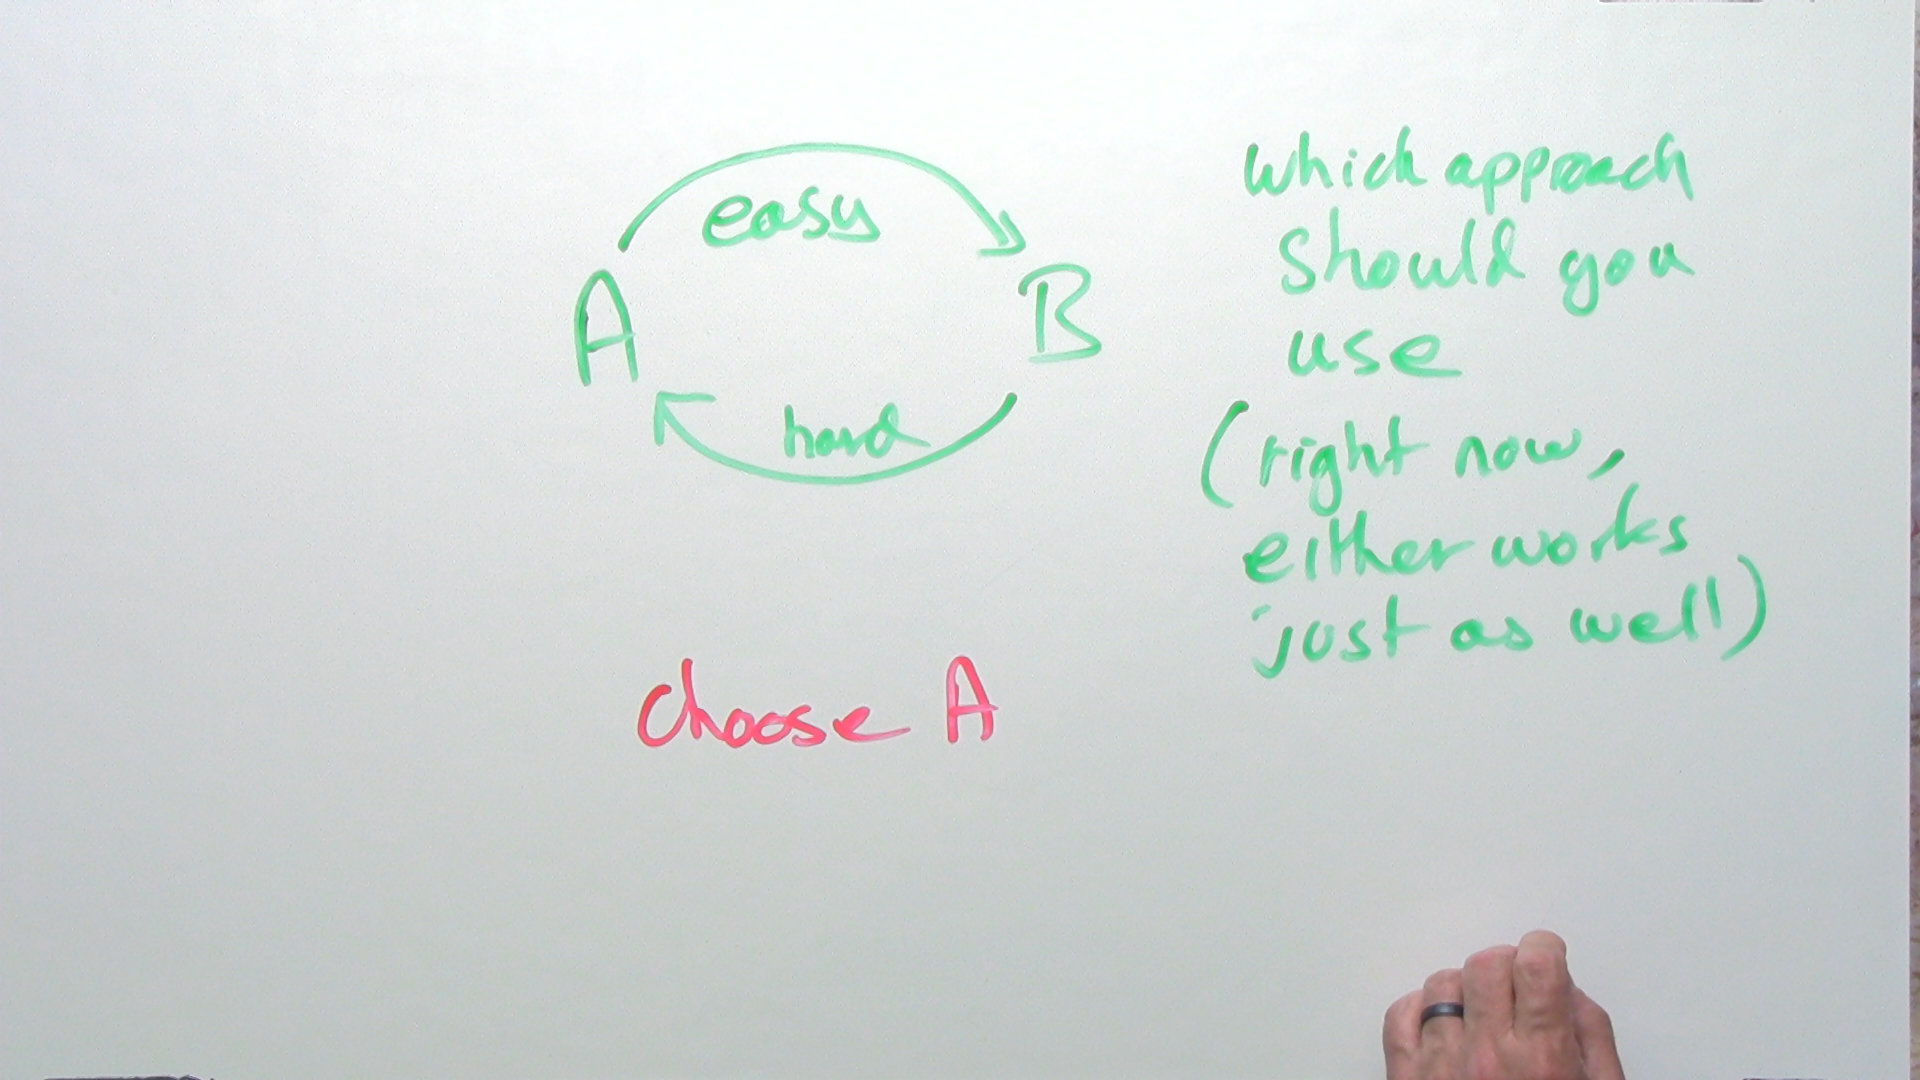 easy
A
B
hard
which approach
should you
use
(right now,
either works
just as well)
choose A